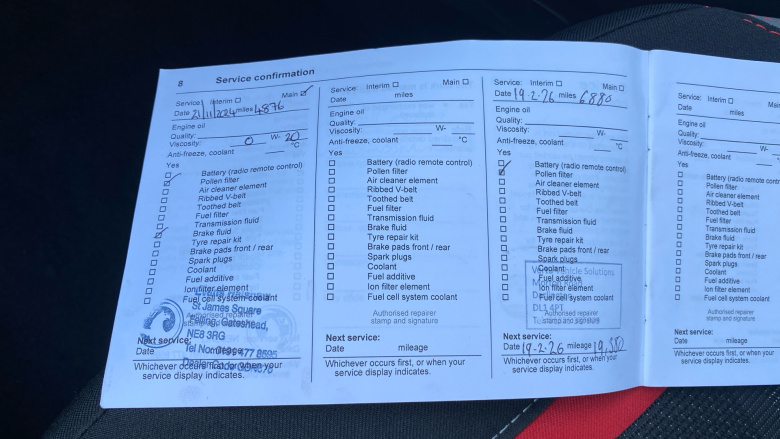 8 Service confirmation
Service: Interim Main
Date 21/11/2024 miles 4876
Engine oil
Quality:
Viscosity: 0 W- 20
Anti-freeze, coolant °C
Yes
Battery (radio remote control)
Pollen filter
Air cleaner element
Ribbed V-belt
Toothed belt
Fuel filter
Transmission fluid
Brake fluid
Tyre repair kit
Brake pads front / rear
Spark plugs
Coolant
Fuel additive
Ion filter element
Fuel cell system coolant
St James Square
Authorised repairer
Felling, Gateshead,
NE8 3RG
Next service:
Date
Whichever occurs first, or when your
service display indicates.
Service: Interim Main
Date miles
Engine oil
Quality:
Viscosity: W-
Anti-freeze, coolant °C
Yes
Battery (radio remote control)
Pollen filter
Air cleaner element
Ribbed V-belt
Toothed belt
Fuel filter
Transmission fluid
Brake fluid
Tyre repair kit
Brake pads front / rear
Spark plugs
Coolant
Fuel additive
Ion filter element
Fuel cell system coolant
Authorised repairer
stamp and signature
Next service:
Date mileage
Whichever occurs first, or when your
service display indicates.
Service: Interim Main
Date 19-2-26 miles 6880
Engine oil
Quality:
Viscosity: W-
Anti-freeze, coolant °C
Yes
Battery (radio remote control)
Pollen filter
Air cleaner element
Ribbed V-belt
Toothed belt
Fuel filter
Transmission fluid
Brake fluid
Tyre repair kit
Brake pads front / rear
Spark plugs
Coolant
Vehicle Solutions
Fuel additive
Ion filter element
Fuel cell system coolant
DL1 4PT
Authorised repairer
stamp and signature
Next service:
Date 19-2-26 mileage
Whichever occurs first, or when your
service display indicates.
Service: Interim Main
Date miles
Engine oil
Quality:
Viscosity:
Anti-freeze, coolant
Yes
Battery (radio remote
Pollen filter
Air cleaner element
Ribbed V-belt
Toothed belt
Fuel filter
Transmission fluid
Brake fluid
Tyre repair kit
Brake pads front / rear
Spark plugs
Coolant
Fuel additive
Ion filter element
Fuel cell system coolant
Authorised
stamp and sig
Next service:
Date mileage
Whichever occurs first, or
service display indicates.